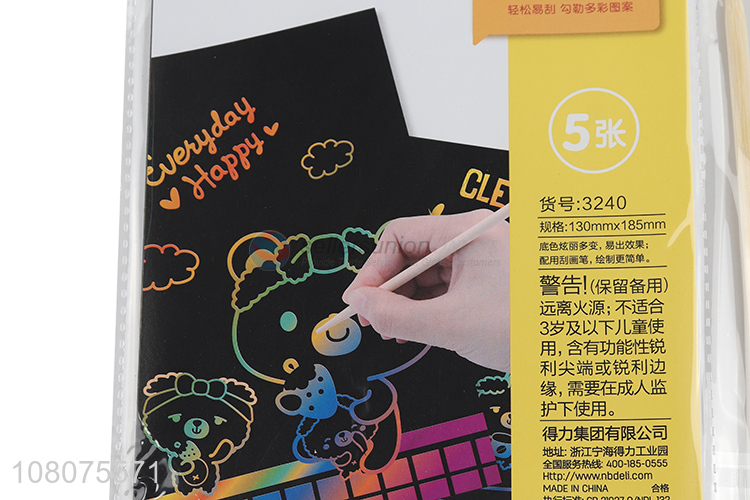 轻松易刮 勾勒多彩图案
5张
Everyday
Happy
CLE
货号:3240
规格:130mm×185mm
底色炫丽多变，易出效果；
配用刮画笔，绘制更简单。
警告!(保留备用)
远离火源；不适合
3岁及以下儿童使
用，含有功能性锐
利尖端或锐利边
缘，需要在成人监
护下使用。
得力集团有限公司
地址: 浙江宁海得力工业园
全国服务热线: 400-185-0555
www.nbdeli.com
MADE IN CHINA 合格